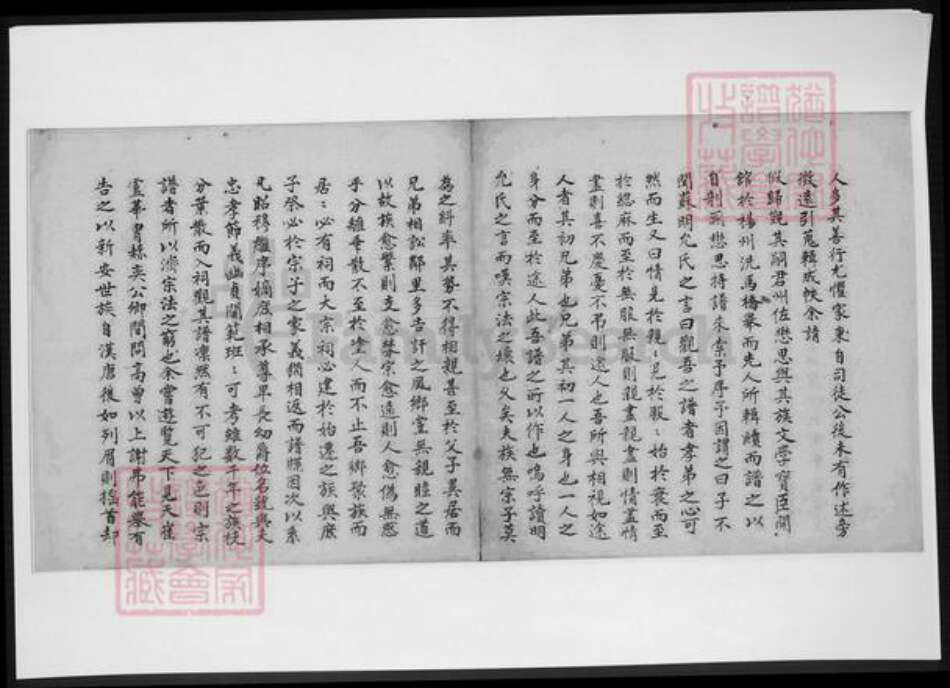 人多其善行尤懼家東自司徒公後未有作述旁
徵遠引蒐輯成帙余請
假歸覲其嗣君州佐懋思與其族文學賓臣開
館於楊州洗馬橋舉而先人所輯牘而譜之以
自剞劂懋思持譜来索予序予因謂之曰子不
聞蘇明允氏之言曰觀吾之譜者孝弟之心可
然而生又曰情見於親〻見於服〻始於衰而至
於緦麻而至於無服無服則親盡親盡則情盡情
盡則喜不慶憂不弔則途人也吾所與相視如途
人者其初兄弟也兄弟其初一人之身也一人之
身分而至於途人此吾譜之所以作也嗚呼讀明
允氏之言而嘆宗法之壞也久矣夫族無宗子莫
為之糾率其勢不得相親甚至於父子異居而
兄弟相訟鄰里多告訐之風鄉黨無親睦之道
以故族愈繁則支愈棼宗愈遠則人愈偽無惑
乎分離乖散不至於塗人而不止吾鄉聚族而
居〻必有祠而大宗祠必建於始遷之族與庶
子祭必於宗子之家義猶相返而譜牒因次以系
凡昭穆繼序嫡庶相承尊卑長幼爵位名號與夫
忠孝節義幽貞閫範班〻可考雖数千年之族枝
分葉散而入祠觀其譜凜然有不可犯之色則宗
譜者所以濟宗法之窮也余嘗遊覽天下見夫崔
盧華胄棘奕公鄉間問高曾以上謝弗能舉有
告之以新安世族自漢唐後如列眉則搖首却